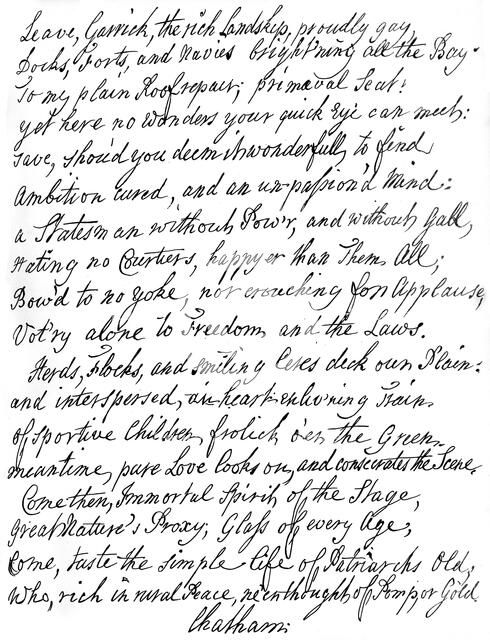 Leave, Garrick, the rich Landskip, proudly gay,
Docks, Forts, and Navies bright'ning all the Bay.
To my plain Roof repair; primæval Seat!
yet here no wonders your quick Eye can meet:
save, shou'd you deem it wonderfull, to find
Ambition cured, and an un-passion'd Mind:
a Statesman without Pow'r, and without Gall,
Hating no Courtiers, happyer than Them All;
Bow'd to no yoke, nor crouching for Applause,
Vot'ry alone to Freedom, and the Laws.
Herds, Flocks, and smiling Ceres deck our Plain:
and interspersed, an heart-enliv'ning Train
of sportive Children, frolick o'er the Green.
meantime, pure Love looks on, and consecrates the Scene.
Come then, Immortal Spirit of the Stage,
Great Nature's Proxy, Glass of every Age;
Come, taste the simple Life of Patriarchs Old,
Who, rich in rural Peace, ne'er thought of Pomp, or Gold.
Chatham: